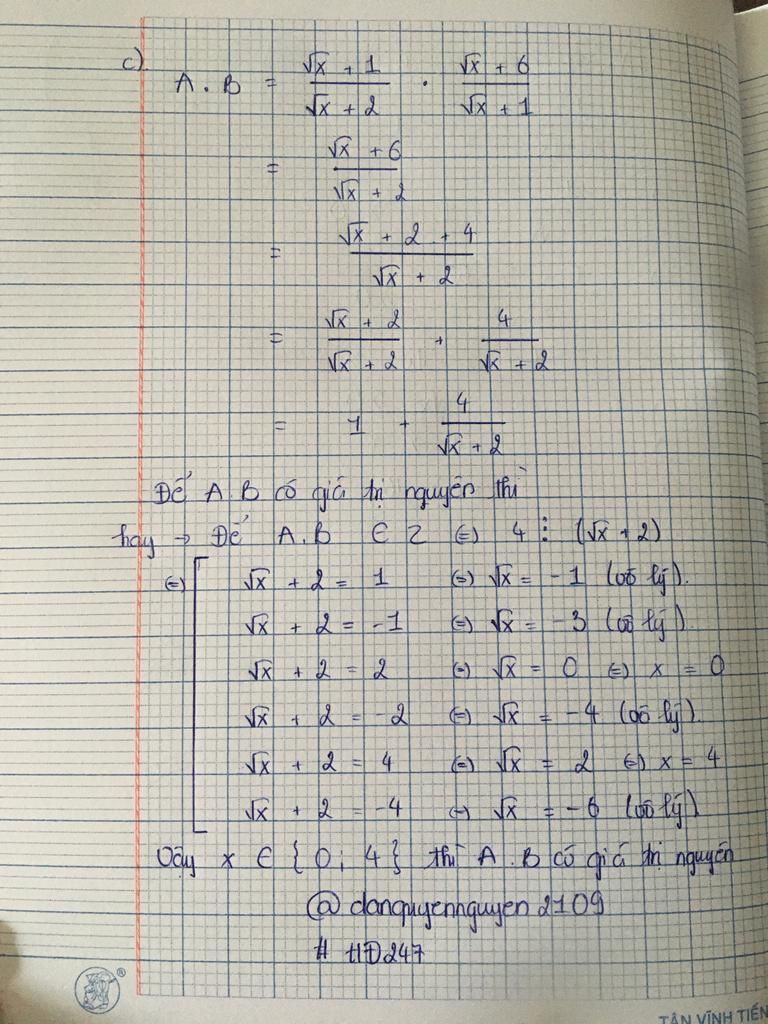 c) A . B = (√x + 1)/(√x + 2) . (√x + 6)/(√x + 1)
= (√x + 6)/(√x + 2)
= (√x + 2 + 4)/(√x + 2)
= (√x + 2)/(√x + 2) + 4/(√x + 2)
= 1 + 4/(√x + 2)
Để A.B có giá trị nguyên thì
hay → Để A.B ∈ Z (=) 4 ⋮ (√x + 2)
(=) [ √x + 2 = 1 (=) √x = -1 (vô lý).
√x + 2 = -1 (=) √x = -3 (vô lý).
√x + 2 = 2 (=) √x = 0 (=) x = 0
√x + 2 = -2 (=) √x = -4 (vô lý).
√x + 2 = 4 (=) √x = 2 (=) x = 4
√x + 2 = -4 (=) √x = -6 (vô lý)
Vậy x ∈ {0; 4} thì A.B có giá trị nguyên
@danquyennguyen2109
# HD247
®
TÂN VĨNH TIẾN